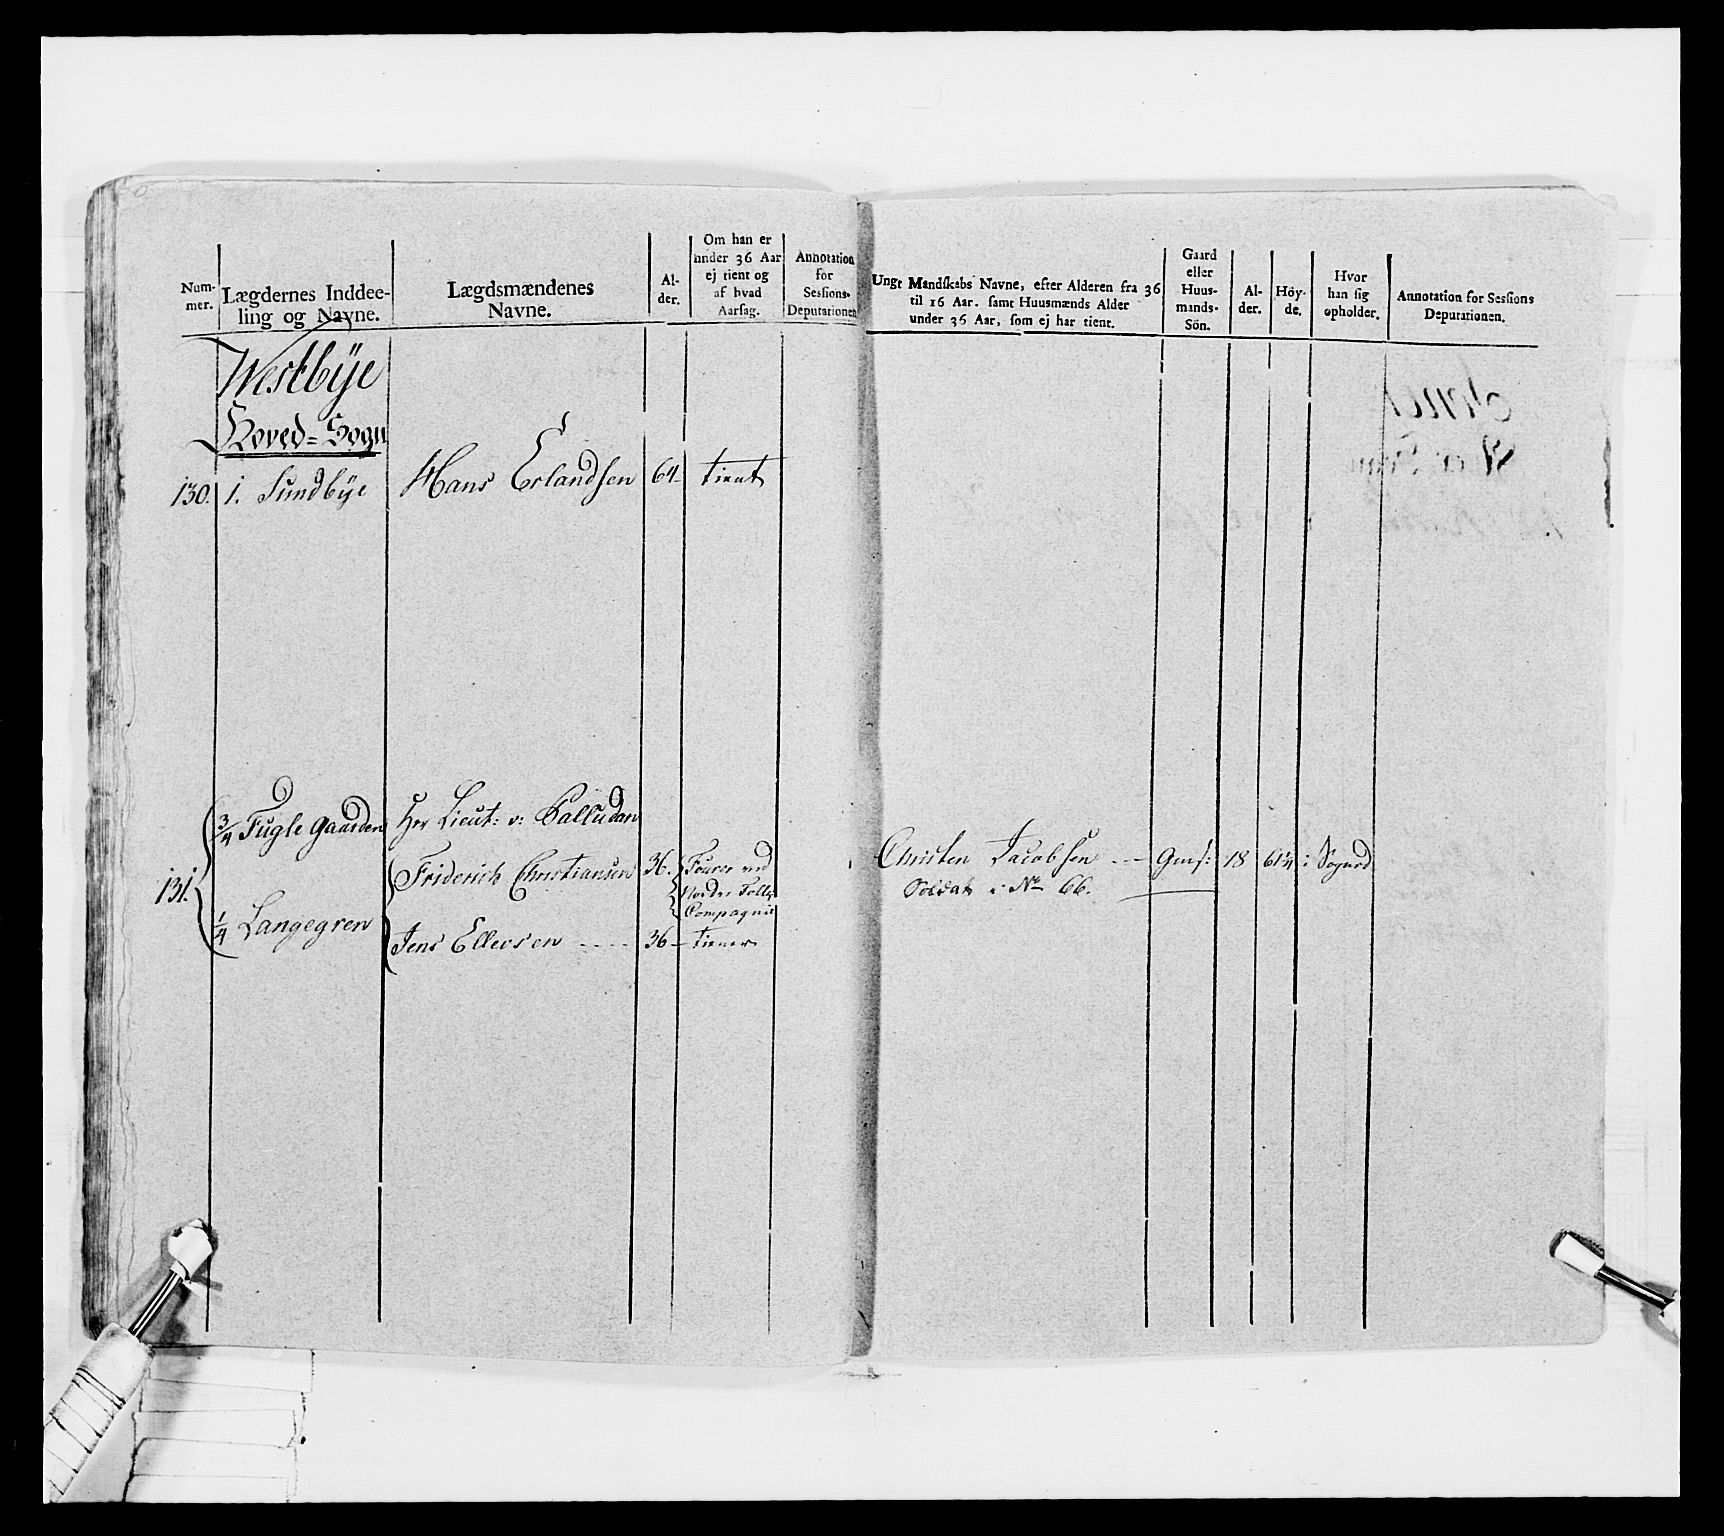 Num-
mer.
Lægdernes Inddee-
ling og Navne.
Lægdsmændenes
Navne.
Al-
der.
Om han er
under 36 Aar
ej tient og
af hvad
Aarsag.
Annotation
for
Sessions-
Deputationen
Ungt Mandskabs Navne, efter Alderen fra 36
til 16 Aar. samt Huusmænds Alder
under 36 Aar, som ej har tient.
Gaard
eller
Huus-
mands-
Sön.
Al-
der.
Höy-
de.
Hvor
han sig
opholder.
Annotation for Sessions
Deputationen.
Westbÿe
Hoved=Sogn
130. 1. Sundbÿe Hans Erlandsen 64 - tient
131. 3/4 Fugle gaarden Her Lieut: v: Palludan
Friderich Christiansen 36. Fourer ved
Nordre Follo
Compagnie
1/4 Langegren
Jens Ellevsen ---- 36 - tiener
Christen Jacobsen --- Gms: 18 61¼ : Sogned
Soldat i No 66.